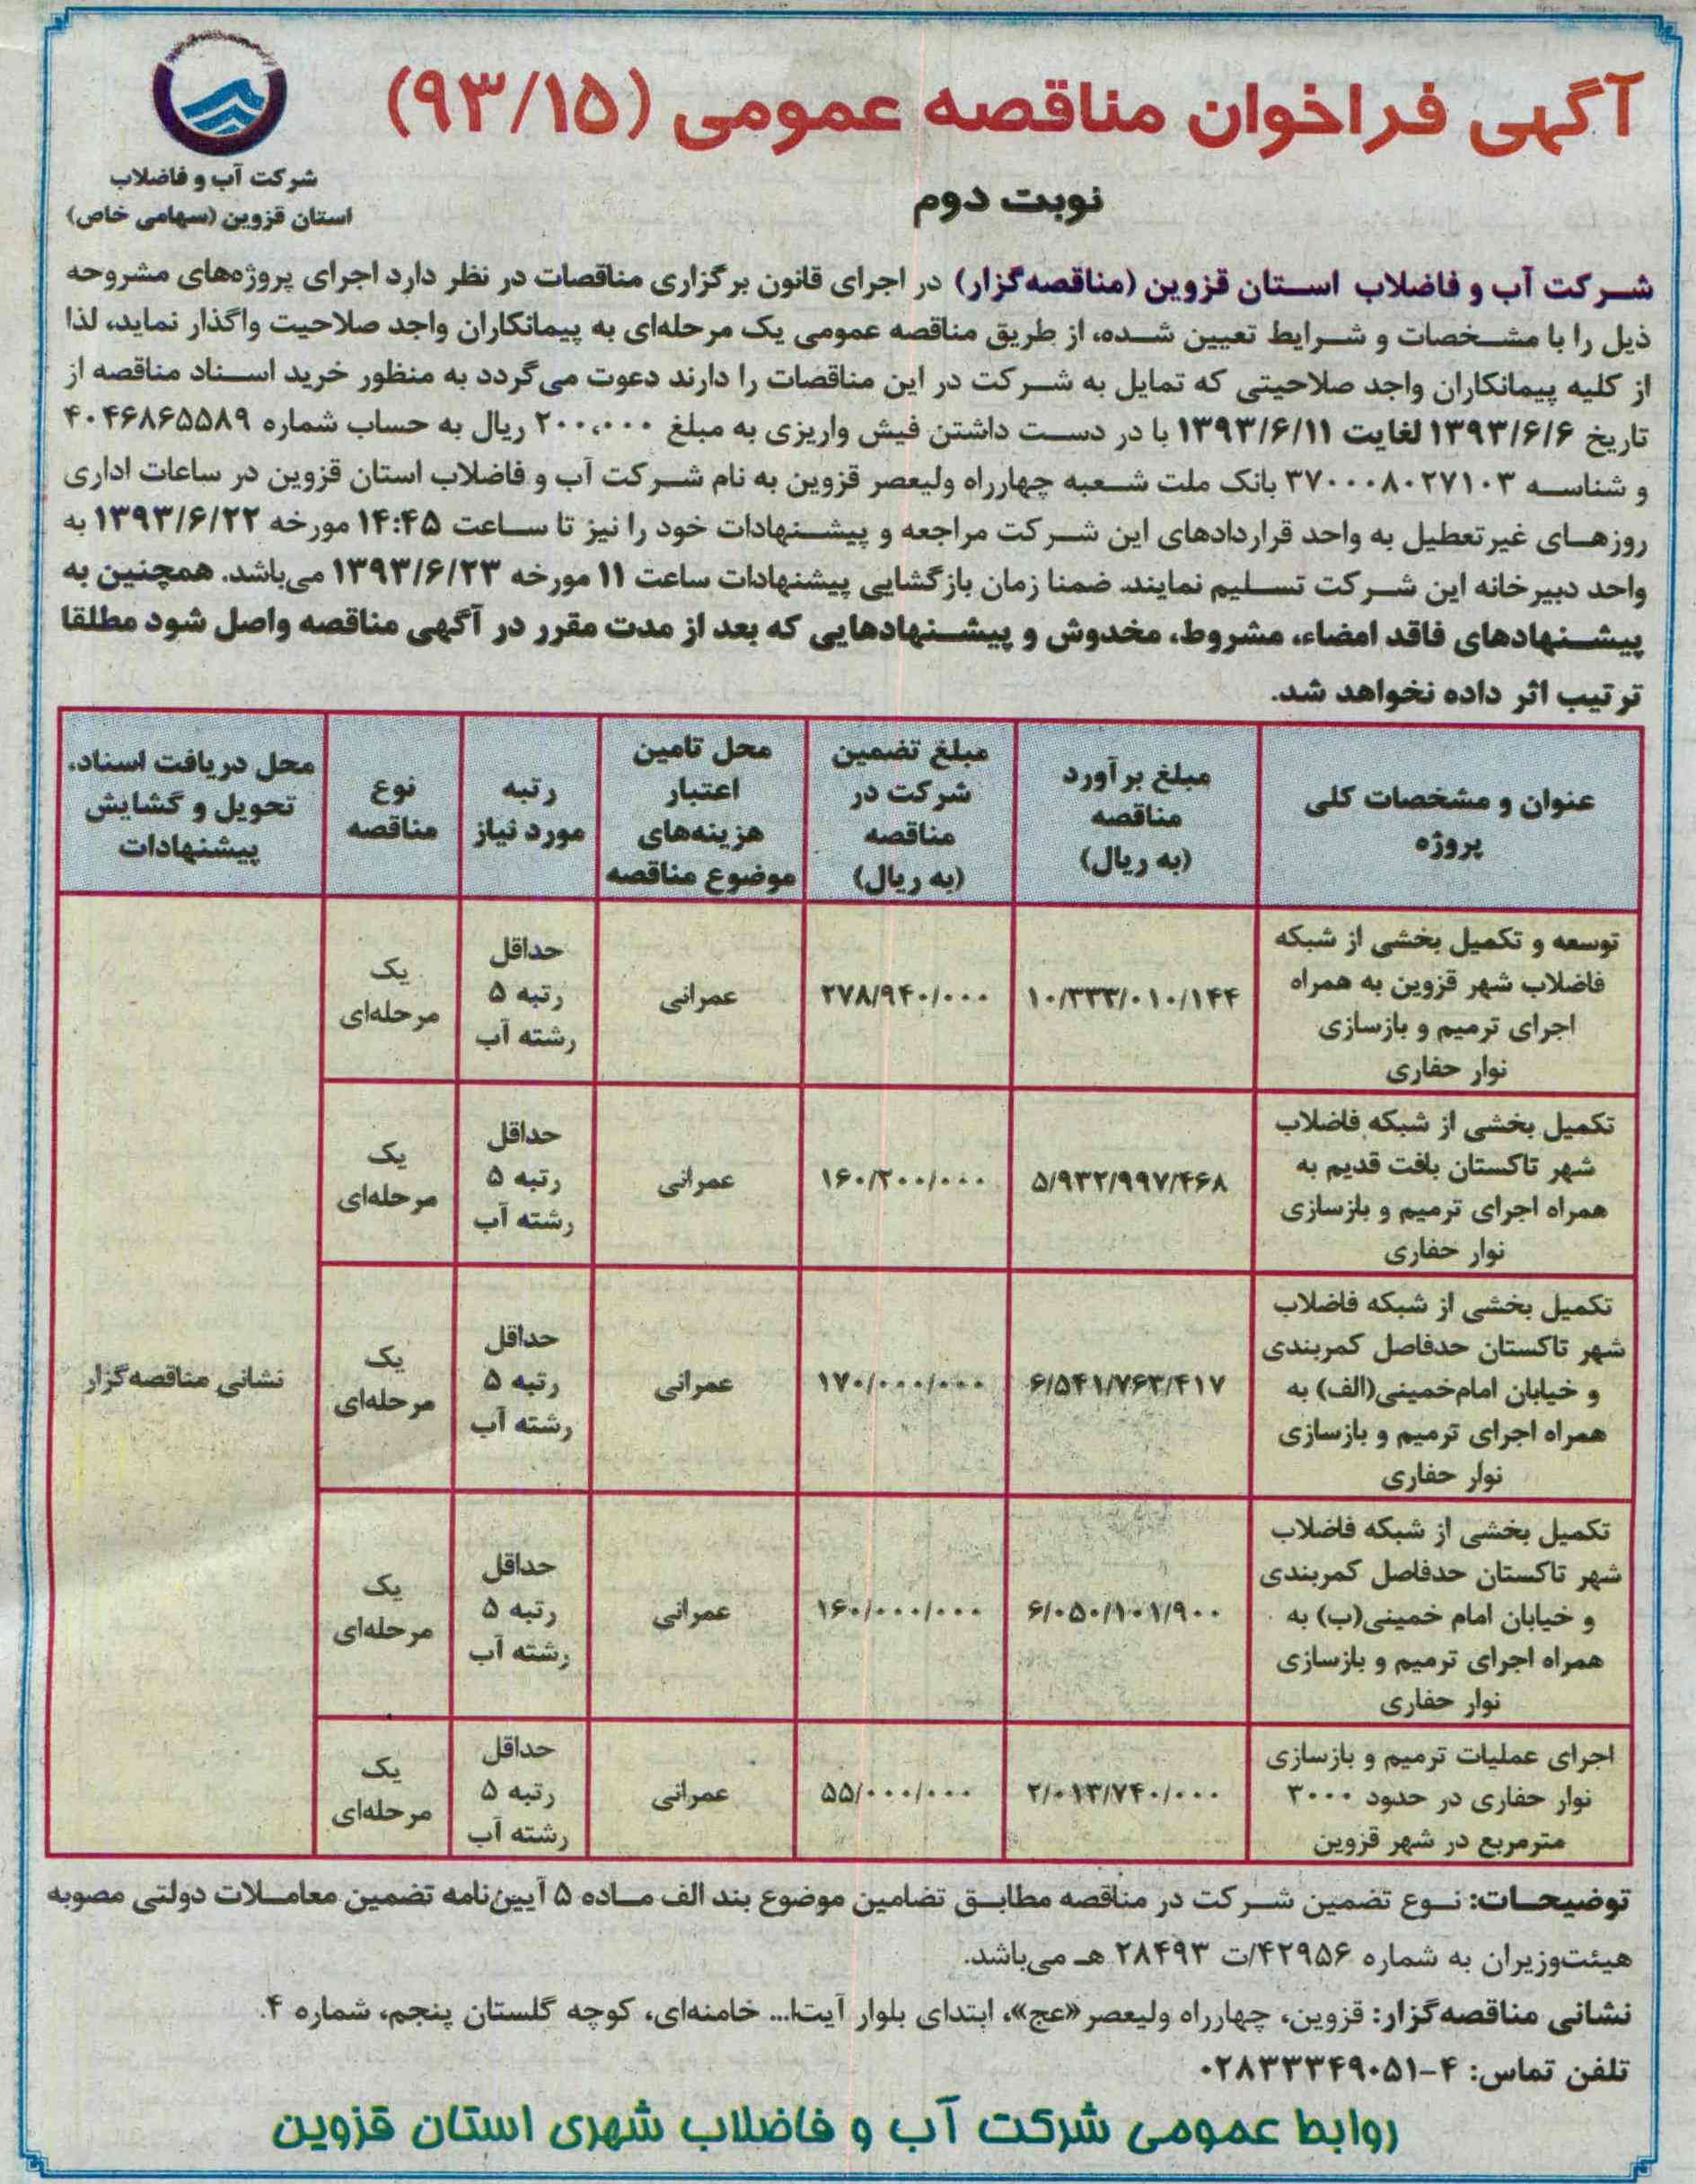 آگهی فراخوان مناقصه عمومی (۹۳/۱۵)
نوبت دوم
شرکت آب و فاضلاب
استان قزوین (سهامی خاص)
شرکت آب و فاضلاب استان قزوین (مناقصه‌گزار) در اجرای قانون برگزاری مناقصات در نظر دارد اجرای پروژه‌های مشروحه
ذیل را با مشخصات و شرایط تعیین شده، از طریق مناقصه عمومی یک مرحله‌ای به پیمانکاران واجد صلاحیت واگذار نماید، لذا
از کلیه پیمانکاران واجد صلاحیتی که تمایل به شرکت در این مناقصات را دارند دعوت می‌گردد به منظور خرید اسناد مناقصه از
تاریخ ۱۳۹۳/۶/۶ لغایت ۱۳۹۳/۶/۱۱ با در دست داشتن فیش واریزی به مبلغ ۲۰۰،۰۰۰ ریال به حساب شماره ۴۰۴۶۸۶۵۵۸۹
و شناسه ۳۷۰۰۰۸۰۲۷۱۰۳ بانک ملت شعبه چهارراه ولیعصر قزوین به نام شرکت آب و فاضلاب استان قزوین در ساعات اداری
روزهای غیرتعطیل به واحد قراردادهای این شرکت مراجعه و پیشنهادات خود را نیز تا ساعت ۱۴:۴۵ مورخه ۱۳۹۳/۶/۲۲ به
واحد دبیرخانه این شرکت تسلیم نمایند. ضمنا زمان بازگشایی پیشنهادات ساعت ۱۱ مورخه ۱۳۹۳/۶/۲۳ می‌باشد. همچنین به
پیشنهادهای فاقد امضاء، مشروط، مخدوش و پیشنهادهایی که بعد از مدت مقرر در آگهی مناقصه واصل شود مطلقا
ترتیب اثر داده نخواهد شد.
عنوان و مشخصات کلی
پروژه
مبلغ برآورد
مناقصه
(به ریال)
مبلغ تضمین
شرکت در
مناقصه
(به ریال)
محل تامین
اعتبار
هزینه‌های
موضوع مناقصه
رتبه
مورد نیاز
نوع
مناقصه
محل دریافت اسناد،
تحویل و گشایش
پیشنهادات
توسعه و تکمیل بخشی از شبکه
فاضلاب شهر قزوین به همراه
اجرای ترمیم و بازسازی
نوار حفاری
۱۰/۳۳۳/۰۱۰/۱۴۴
۲۷۸/۹۴۰/۰۰۰
عمرانی
حداقل
رتبه ۵
رشته آب
یک
مرحله‌ای
تکمیل بخشی از شبکه فاضلاب
شهر تاکستان بافت قدیم به
همراه اجرای ترمیم و بازسازی
نوار حفاری
۵/۹۳۲/۹۹۷/۴۶۸
۱۶۰/۲۰۰/۰۰۰
عمرانی
حداقل
رتبه ۵
رشته آب
یک
مرحله‌ای
تکمیل بخشی از شبکه فاضلاب
شهر تاکستان حدفاصل کمربندی
و خیابان امام‌خمینی(الف) به
همراه اجرای ترمیم و بازسازی
نوار حفاری
۶/۵۴۱/۷۶۳/۴۱۷
۱۷۰/۰۰۰/۰۰۰
عمرانی
حداقل
رتبه ۵
رشته آب
یک
مرحله‌ای
نشانی مناقصه‌گزار
تکمیل بخشی از شبکه فاضلاب
شهر تاکستان حدفاصل کمربندی
و خیابان امام خمینی(ب) به
همراه اجرای ترمیم و بازسازی
نوار حفاری
۶/۰۵۰/۱۰۱/۹۰۰
۱۶۰/۰۰۰/۰۰۰
عمرانی
حداقل
رتبه ۵
رشته آب
یک
مرحله‌ای
اجرای عملیات ترمیم و بازسازی
نوار حفاری در حدود ۳۰۰۰
مترمربع در شهر قزوین
۲/۰۱۳/۷۴۰/۰۰۰
۵۵/۰۰۰/۰۰۰
عمرانی
حداقل
رتبه ۵
رشته آب
یک
مرحله‌ای
توضیحات: نوع تضمین شرکت در مناقصه مطابق تضامین موضوع بند الف ماده ۵ آیین‌نامه تضمین معاملات دولتی مصوبه
هیئت‌وزیران به شماره ۴۲۹۵۶/ت ۲۸۴۹۳ هـ می‌باشد.
نشانی مناقصه‌گزار: قزوین، چهارراه ولیعصر«عج»، ابتدای بلوار آیت‌ا... خامنه‌ای، کوچه گلستان پنجم، شماره ۴.
تلفن تماس: ۴-۰۲۸۳۳۳۴۹۰۵۱
روابط عمومی شرکت آب و فاضلاب شهری استان قزوین